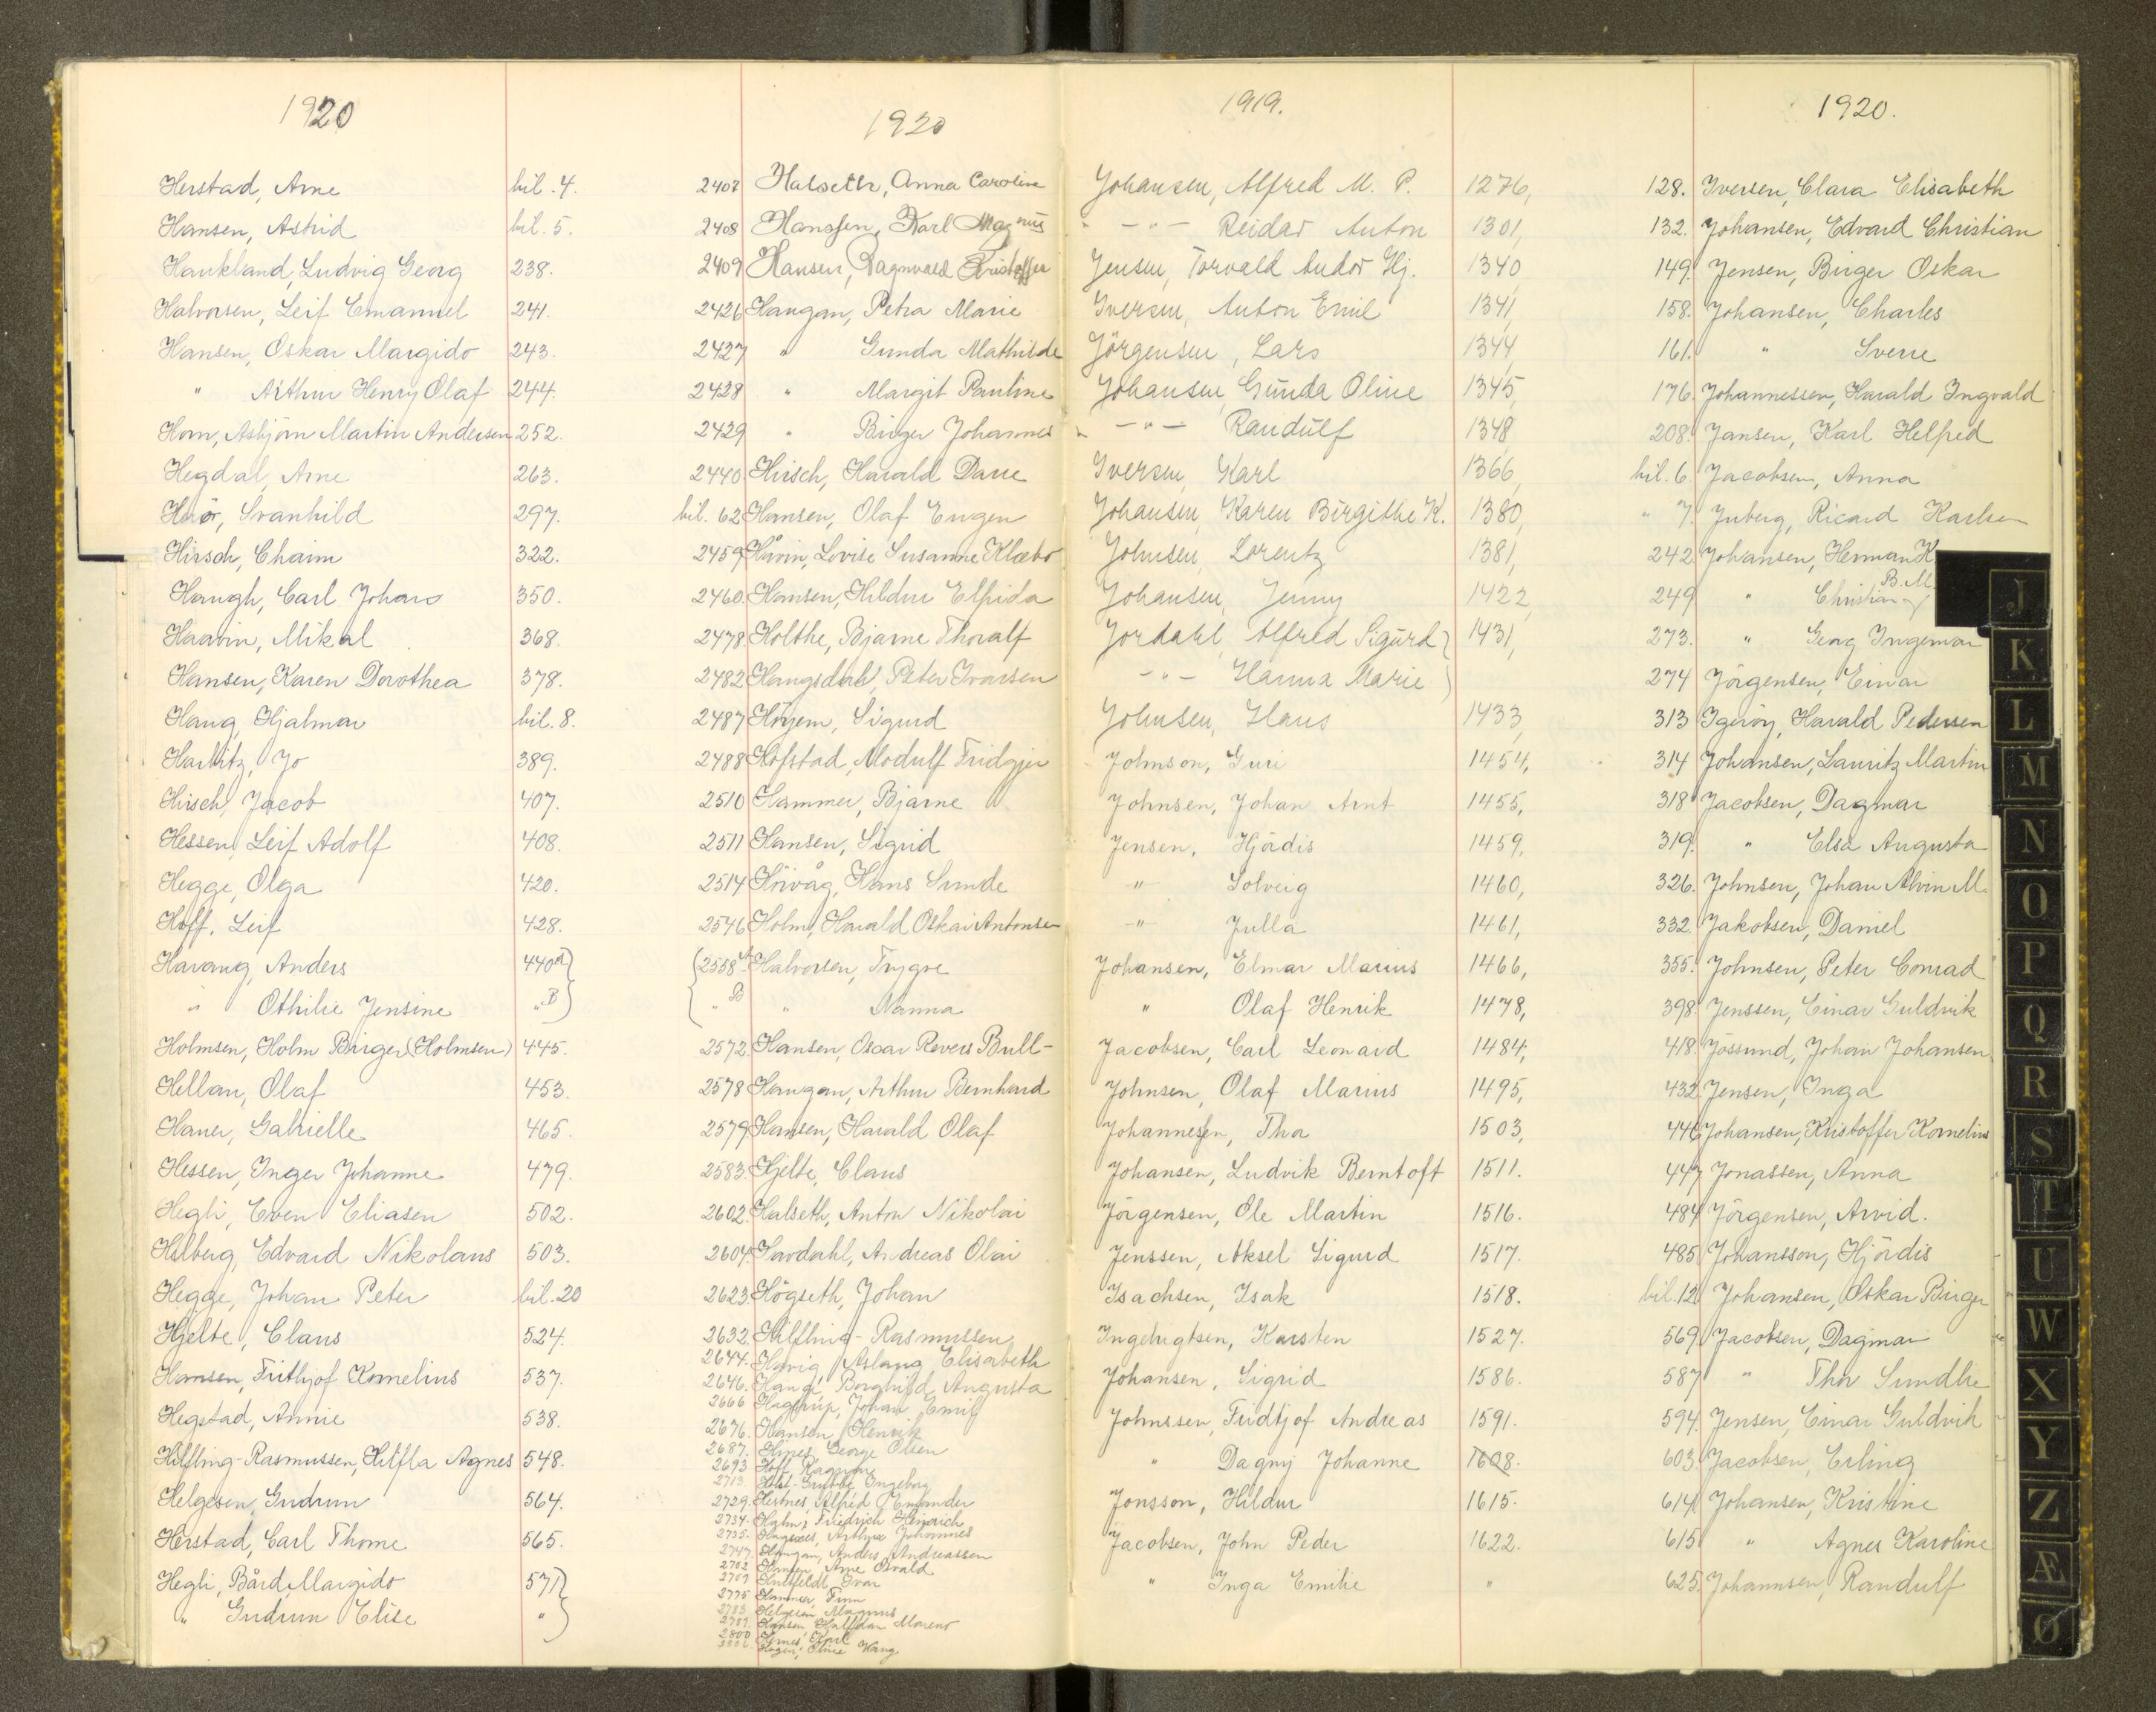 1920
Herstad, Arne bil. 4.
Hansen, Astrid bil. 5.
Haukland, Ludvig Georg 238.
Halvorsen, Leif Emanuel 241.
Hansen, Oskar Margido 243.
" Arthur Henry Olaf 244.
Horn, Asbjörn Martin Andersen 252.
Hegdal, Arne 263.
Svanhild 297.
Hirsch, Chaim 322.
Haugh, Carl Johan 350.
Haavin, Mikal 368.
Hansen, Karen Dorothea 378.
Haug, Hjalmar bil. 8.
Harbitz, Jo 389.
Hirsch, Jacob 407.
Hessen, Leif Adolf 408.
Hegge, Olga 420.
Hoff, Leif 428.
Harang, Anders 440A
" Othilie Jensine "B
Holmsen, Holm Birger (Holmsen) 445.
Hellan, Olaf 453.
Haner, Gabrielle 465.
Hessen, Inger Johanne 479.
Hegli, Even Eliasen 502.
Edvard Nikolaus 503.
Hegge, Johan Peter bil. 20
Hjelte, Claus 524.
Hansen, Frithjof Kornelius 537.
Hegstad, Annie 538.
Hilfling-Rasmussen, Hilfla Agnes 548.
Helgesen, Gudrun 564.
Herstad, Carl Thome 565.
Hegli, Bård Margido 571
" Gudrun Elise "
1920
2407 Halseth, Anna Caroline
2408 Hanssen, Karl Magnus
2409 Hansen, Ragnvald Kristoffer
2426 Haugan, Petra Marie
2427 " Gunda Mathilde
2428 " Margit Pauline
2429 " Birger Johannes
2440 Hirsch, Harald
bil. 62 Hansen, Olaf Eugen
2459 Håvin, Lovise Susanne Klæbo
2460. Hansen, Hildur Elfrida
2478. Holthe, Bjarne Thoralf
2482 Haugsdal, Peter Ivarsen
2487 Höyem, Sigurd
2488 Hofstad, Modulf Fridtjer
2510 Hammer, Bjarne
2511 Hansen, Sigrid
2514 Hans Sunde
2546 Holm, Harald Oskar Antonsen
2558 A Halvorsen, Trygve
" B " Nanna
2572 Hansen, Oscar Revers Bull-
2578 Haugan, Arthur Bernhard
2579 Hansen, Harald Olaf
2583. Hjelte, Claus
2602. Halseth, Anton Nikolai
2604. Havdahl, Andreas Olai
2623. Högseth, Johan
2632. Hilfling-Rasmussen
2644. Havig, Aslaug Elisabeth
2646. Borghild Augusta
2666 Hagerup, Johan Emil
2676. Hansen, Henrik
2687. George Olsen
2693 Hoff, Ragnvar
2713 Ingeborg
2729. Hestnes, Alfred
2734. Hahn, Friedrich Heinrich
2735. Arthur Johannes
2747. Haugan, Anders Andreassen
Hansen, Arne Osvald
Ivar
2775 Hammer, Finn
2783. Helgesen Magnus
Hansen Halfdan
2800
1919.
Johansen, Alfred M. P. 1276,
" - " - Reidar Anton 1301,
Jensen, Torvald Andor Hj. 1340
Iversen, Anton Emil 1341,
Jörgensen, Lars 1344,
Johansen, Gunda Oline 1345,
" - " - Randulf 1348
Iversen, Karl 1366,
Johansen, Karen Birgithe K. 1380,
Johnsen, Lorentz 1381,
Johansen, Jenny 1422,
Jordahl, Alfred Sigurd 1431,
- " - Hanna Marie
Johnsen, Hans 1433,
Johnson, Guri 1454,
Johnsen, Johan Arnt 1455,
Jensen, Hjördis 1459,
- " - Solveig 1460,
- " - Julla 1461,
Johansen, Elmar Marius 1466,
" Olaf Henrik 1478,
Jacobsen, Carl Leonard 1484,
Johnsen, Olaf Marius 1495,
Johannesen, Thor 1503,
Johansen, Ludvik Berntoft 1511.
Jörgensen, Ole Martin 1516.
Jenssen, Aksel Sigurd 1517.
Isachsen, Isak 1518.
Ingebrigtsen, Karsten 1527.
Johansen, Sigrid 1586.
Johnssen, Fridtjof Andreas 1591.
" Dagny Johanne 1608.
Jonsson, Hildur 1615.
Jacobsen, John Peder 1622.
" Inga Emilie "
1920.
128. Iversen, Clara Elisabeth
132. Johansen, Edvard Christian
149. Jensen, Birger Oskar
158. Johansen, Charles
161. " Sverre
176. Johannessen, Harald Ingvald
208. Jansen, Karl Helfred
bil. 6. Jacobsen, Anna
" 7. Juberg, Ricard Karlsen
242. Johansen, Herman K.
249 " Christian B. M.
273. " Georg Ingemar
274 Jörgensen, Einar
313 Igeröy, Harald Pedersen
314 Johansen, Lauritz Martin
318 Jacobsen, Dagmar
319. " Elsa Augusta
326. Johnsen, Johan Alvin M.
332. Jakobsen, Daniel
355. Johnsen, Peter Conrad
398. Jenssen, Einar Guldvik
418. Jössund, Johan Johansen
432. Jensen, Inga
446 Johansen, Kristoffer Kornelius
447 Jonassen, Anna
484 Jörgensen, Arvid.
485 Johansson, Hjördis
bil. 12 Johansen, Oskar Birger
569 Jacobsen, Dagmar
587 " Thor Sundlie
594. Jensen, Einar Guldvik
603. Jacobsen, Erling
614. Johansen, Kristine
615 " Agnes Karoline
625. Johannsen, Randulf
J
K
L
M
N
O
P
Q
R
S
T
U
W
X
Y
Z
Æ
Ø